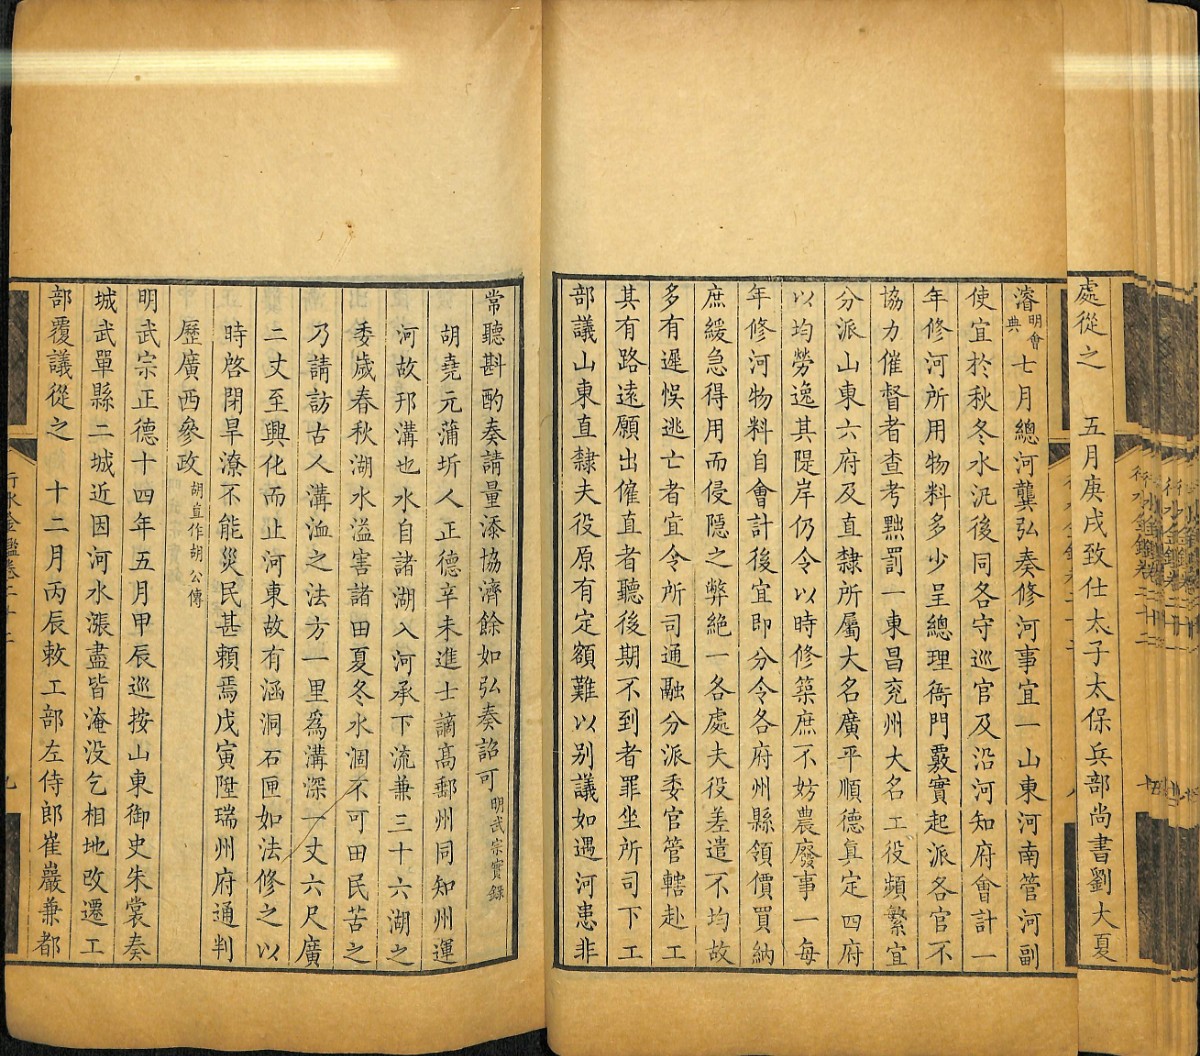 處從之　五月庚戌致仕太子太保兵部尚書劉大夏
濬明會典七月總河龔弘奏修河事宜一山東河南管河副
使宜於秋冬水汛後同各守巡官及沿河知府會計一
年修河所用物料多少呈總理衙門覈實起派各官不
協力催督者查考黜罰一東昌兖州大名工役頻繁宜
分派山東六府及直隸所屬大名廣平順德真定四府
以均勞逸其隄岸仍令以時修築庶不妨農廢事一每
年修河物料自會計後宜即分令各府州縣領價買納
庶緩急得用而侵隱之弊絶一各處夫役差遣不均故
多有遲悞逃亡者宜令所司通融分派委官管轄赴工
其有路遠願出僱直者聽後期不到者罪坐所司下工
部議山東直隸夫役原有定額難以别議如遇河患非
常聽斟酌奏請量添協濟餘如弘奏詔可明武宗實録
胡堯元蒲圻人正德辛未進士謫髙郵州同知州運
河故邗溝也水自諸湖入河承下流兼三十六湖之
委歲春秋湖水溢害諸田夏冬水涸不可田民苦之
乃請訪古人溝洫之法方一里爲溝深一丈六尺廣
二丈至興化而止河東故有涵洞石匣如法修之以
時啓閉旱潦不能災民甚頼焉戊寅陞瑞州府通判
歷廣西參政胡直作胡公傳
明武宗正德十四年五月甲辰巡按山東御史朱裳奏
城武單縣二城近因河水漲盡皆淹没乞相地改遷工
部覆議從之　十二月丙辰敕工部左侍郎崔巖兼都
行水金鑑卷二十二
九